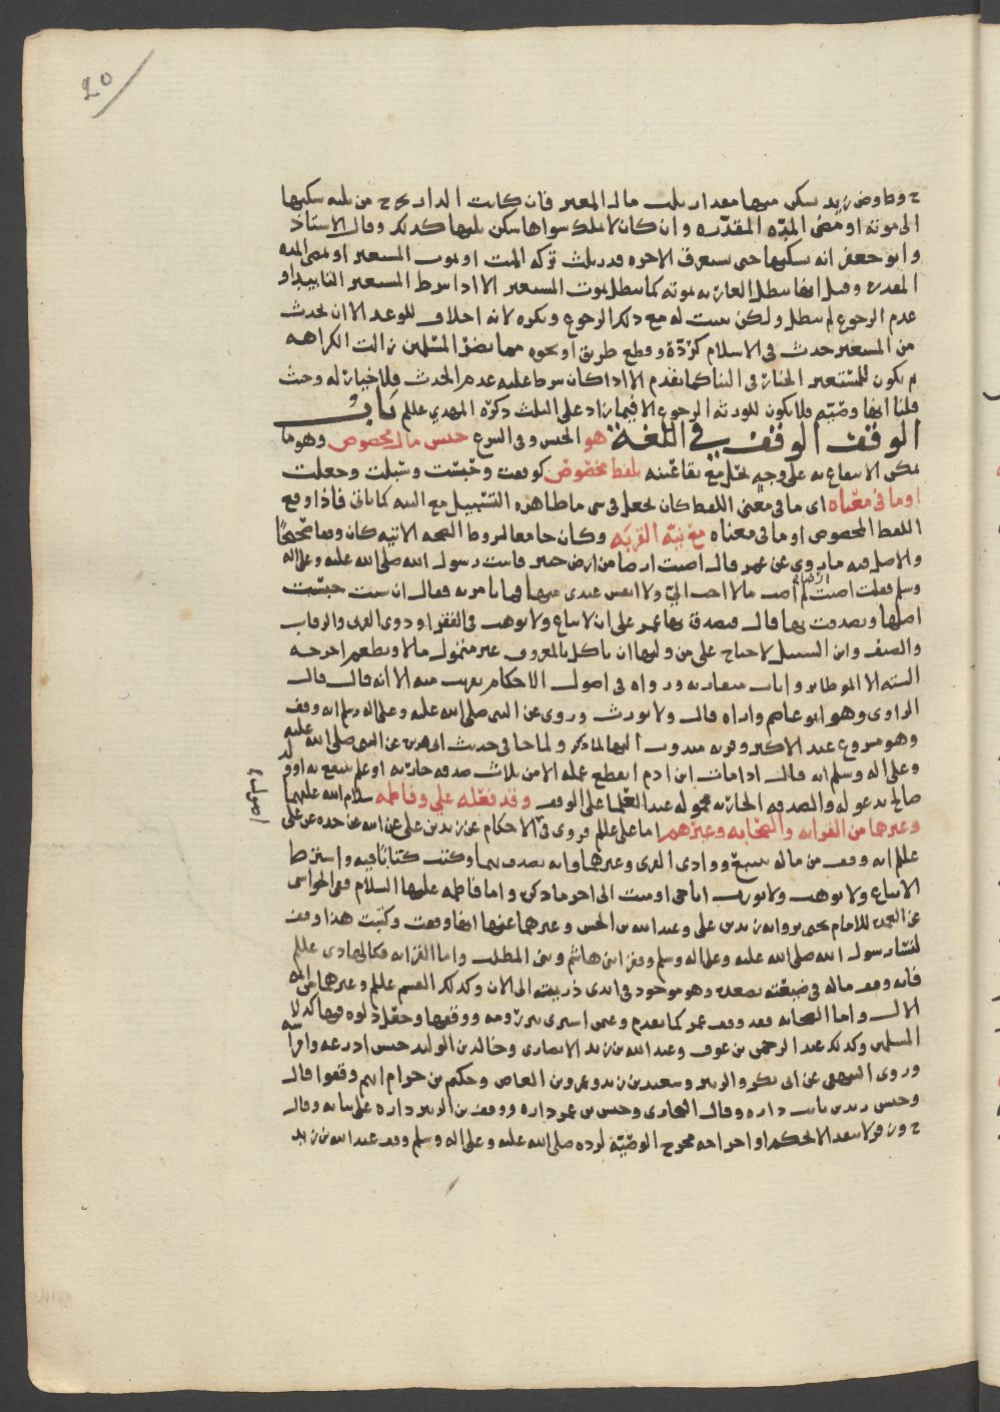 20
الى موته او مضى المدّه المقدّره وان كان لا يملك سواها سكن ثلثها كذلك وقال الاستاذ
وابو جعفر انه يسكنها حتى يستغرق الاجره قدر ثلث تركه الميت او يموت المستعير او تمضى المده
المقدره وقيل انها تبطل العاريه بموته كما تبطل بموت المستعير الا اذا شرط المستعير التابيد او
عدم الرجوع لم تبطل ولكن يثبت له مع ذلك الرجوع ويكره لانه اخلاف للوعد الا ان يحدث
من المستعير حدث فى الاسلام كردّة وقطع طريق او نحوه مما يضر المسلمين زالت الكراهه
ثم يكون للمستعير الخيار فى البنا كما تقدم الا اذا كان شرط عليه عدم الحدث فلا خيار له وحيث
قلنا انها وصيّه فلا يكون للورثه الرجوع الا فيما زاد على الثلث ذكره المهدي علللم باب
الوقف الوقف في اللغة هو الحبس وفى الشرع حبس مال مخصوص وهو ما
يمكن الانتفاع به على وجه يحل مع بقا عينه بلفظ مخصوص كوقفت وحبّست وسبّلت وجعلت
او ما فى معناه اى ما فى معنى اللفظ كان يجعل فى شى ما ظاهره التسبيل مع النيه كما ياتى فاذا وقع
اللفظ المخصوص او ما فى معناه مع نيّه القربه وكان جامعا لشروط الصحه الاتيه كان وقفا صحيحًا
والاصل فيه ما روي عن عمر قال اصبت ارضا من ارض خيبر فاتيت رسول الله صلى الله عليه وعلى اله
وسلم فقلت اصبت ارضا لم اصب مالا احب اليّ ولا انفس عندى منها فما تامر به فقال ان شئت حبّست
اصلها وتصدقت بها قال فتصدق بها عمر على ان لا تباع ولا توهب فى الفقرا وذوى القربى والرقاب
والضيف وابن السبيل لا جناح على من وليها ان ياكل بالمعروف غير متمول مالا ويطعم اخرجه
السته الا الموطا بروايات متقاربه ورواه فى اصول الاحكام بقريب منه الا انه قال قال
الراوى وهو ابو عاصم واراه قال ولا تورث وروى عن النبى صلى الله عليه وعلى اله وسلم انه وقف
وهو مشروع عند الاكثر وقربه مندوب اليها لما ذكر ولما جا فى حديث ابى هريره عن النبى صلى الله عليه
وعلى اله وسلم انه قال اذا مات ابن ادم انقطع عمله الا من ثلاث صدقه جاريه او علم ينتفع به او ولد
صالح يدعو له والصدقه الجاريه محموله عند العلما على الوقف وقد فعله علي وفاطمه سلام الله عليهما
وغيرها من القرابه والصحابه وغيرهم اما على علللم فروى فى الاحكام عن زيد بن على عن ابيه عن جده عن على
علللم انه وقف من ماله ينبع ووادى القرى وغيرهما وانه تصدق بهما وكتب كتابًا فيه واشترط
الا تباع ولا توهب ولا تورث انا حى او ميت الى اخر ما ذكر واما فاطمه عليها السلام ففى الحواشى
للامام يحيى بروايه زيد بن على وعبد الله بن الحسن وغيرهما عنها انها وقفت وكتبت هذا وقف
لنسا رسول الله صلى الله عليه وعلى اله وسلم وفقرا بنى هاشم وبنى المطلب واما القرابه فكالهادى علللم
فانه وقف ماله فى ضيعته بصعده وهو موجود فى ايدى ذريته الى الان وكذلك القسم علللم وغيرها من ائمه
الال واما الصحابه فقد وقف عمر كما تقدم وعثمن اشترى بير رومه ووقفها وجعل دلوه فيها كدلا
المسلمين وكذلك عبد الرحمن بن عوف وعبد الله بن زيد الانصارى وخالد بن الوليد حبس ادرعه وافراسه
وروى البيهقى عن ابى بكر والزبير وسعيد بن زيد وعمرو بن العاص وحكيم بن حزام انهم وقفوا قال
وحبس زيد بن ثابت داره وقال البخارى وحبس بن عمر داره ووقف بن الزبير داره على بناته وقال
ولا ينعقد الا بحكم او اخراجه مخرج الوصيّه لرده صلى الله عليه وعلى اله وسلم وقف عبد الله بن زيد